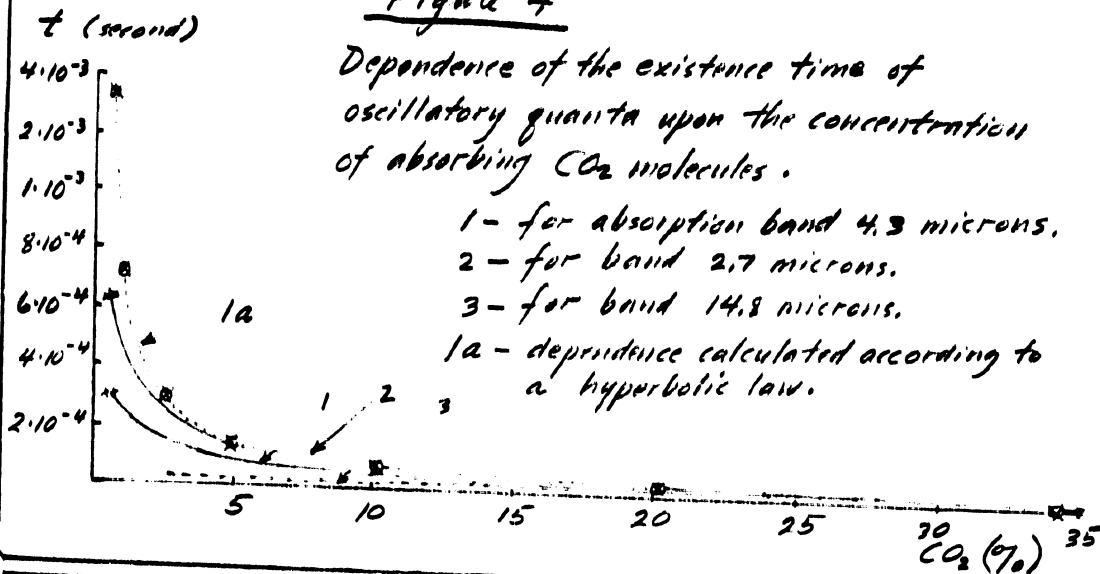 Figure 4
t (second)
Dependence of the existence time of
oscillatory quanta upon the concentration
of absorbing CO₂ molecules.
1 – for absorption band 4.3 microns.
2 – for band 2.7 microns.
3 – for band 14.8 microns.
1a – dependence calculated according to
a hyperbolic law.
4·10⁻³
2·10⁻³
1·10⁻³
8·10⁻⁴
6·10⁻⁴
4·10⁻⁴
2·10⁻⁴
1a
1 2 3
5 10 15 20 25 30 35
CO₂ (%)